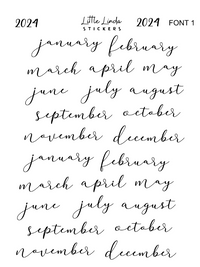 2024 Little Linda 2024 FONT 1
STICKERS
january february
march april may
june july august
september october
november december
january february
march april may
june july august
september october
november december